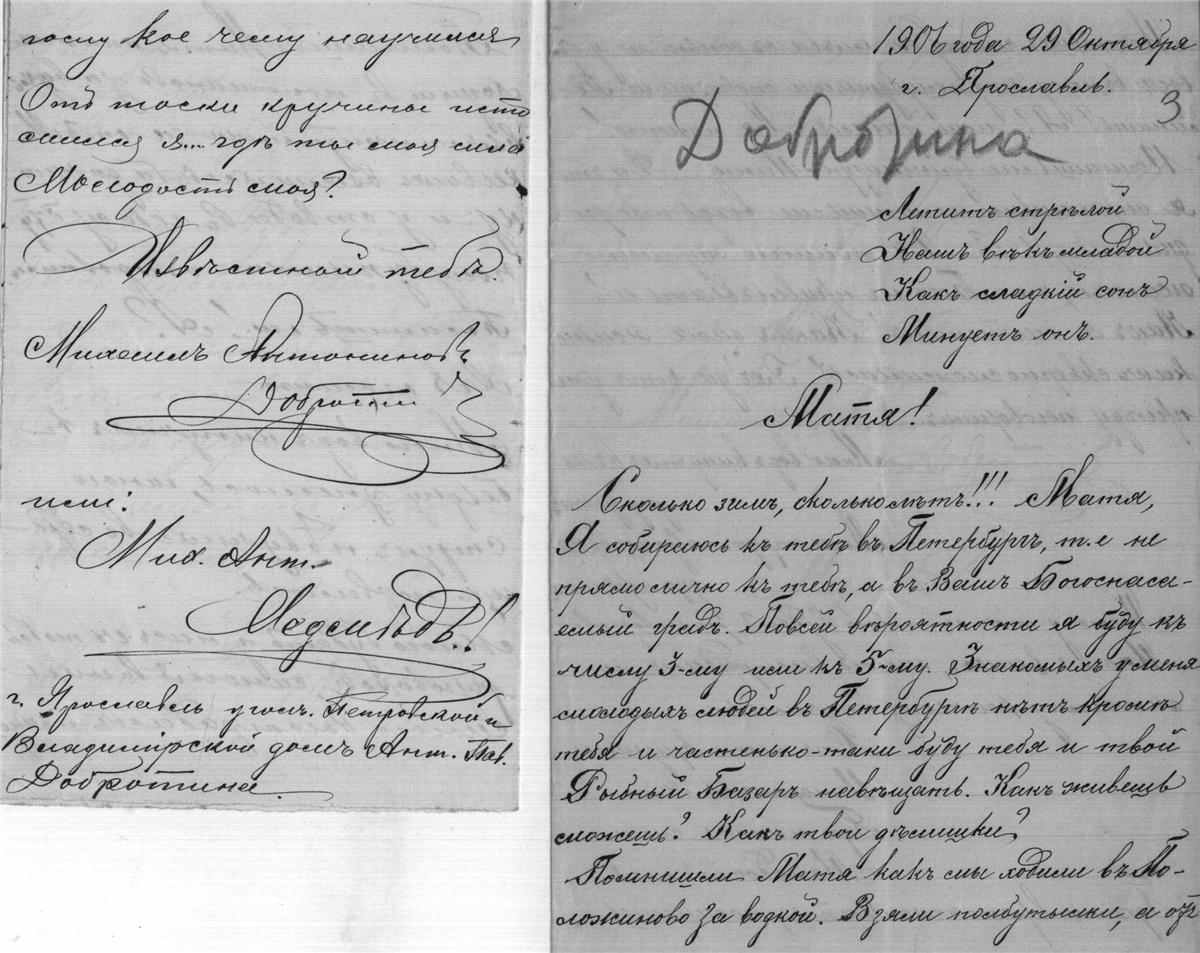 гоему кое чему научился
Отъ тоски кручины исто
мился я... гдѣ ты моя сила
Молодость моя?
Извѣстный тебѣ.
Михаилъ Антониновъ
Добротин
или:
Мих. Ант.
Медвѣдь!
г. Ярославль уголъ. Петровской и
Владимірской домъ Ант. Пав.
Добротина.
1906 года 29 Октября
г. Ярославль.
3
Летитъ стрѣлой
Нашъ вѣкъ младой
Какъ сладкій сонъ
Минуетъ онъ.
Матя!
Сколько зимъ, сколько лѣтъ!!! Матя,
Я собираюсь къ тебѣ въ Петербургъ, т.е не
прямо лично къ тебѣ, а въ Вашъ Богоспаса-
емый градъ. По всей вѣроятности я буду къ
числу 3-му или къ 5-му. Знакомыхъ у меня
молодыхъ людей въ Петербургѣ нѣтъ кромѣ
тебя и частенько-таки буду тебя и твой
Рыбный Базаръ навѣщать. Какъ живешь
можешь? Какъ твои дѣлишки?
Помнишли Матя какъ мы ходили въ По-
ложиново за водкой. Взяли полбутылки, а